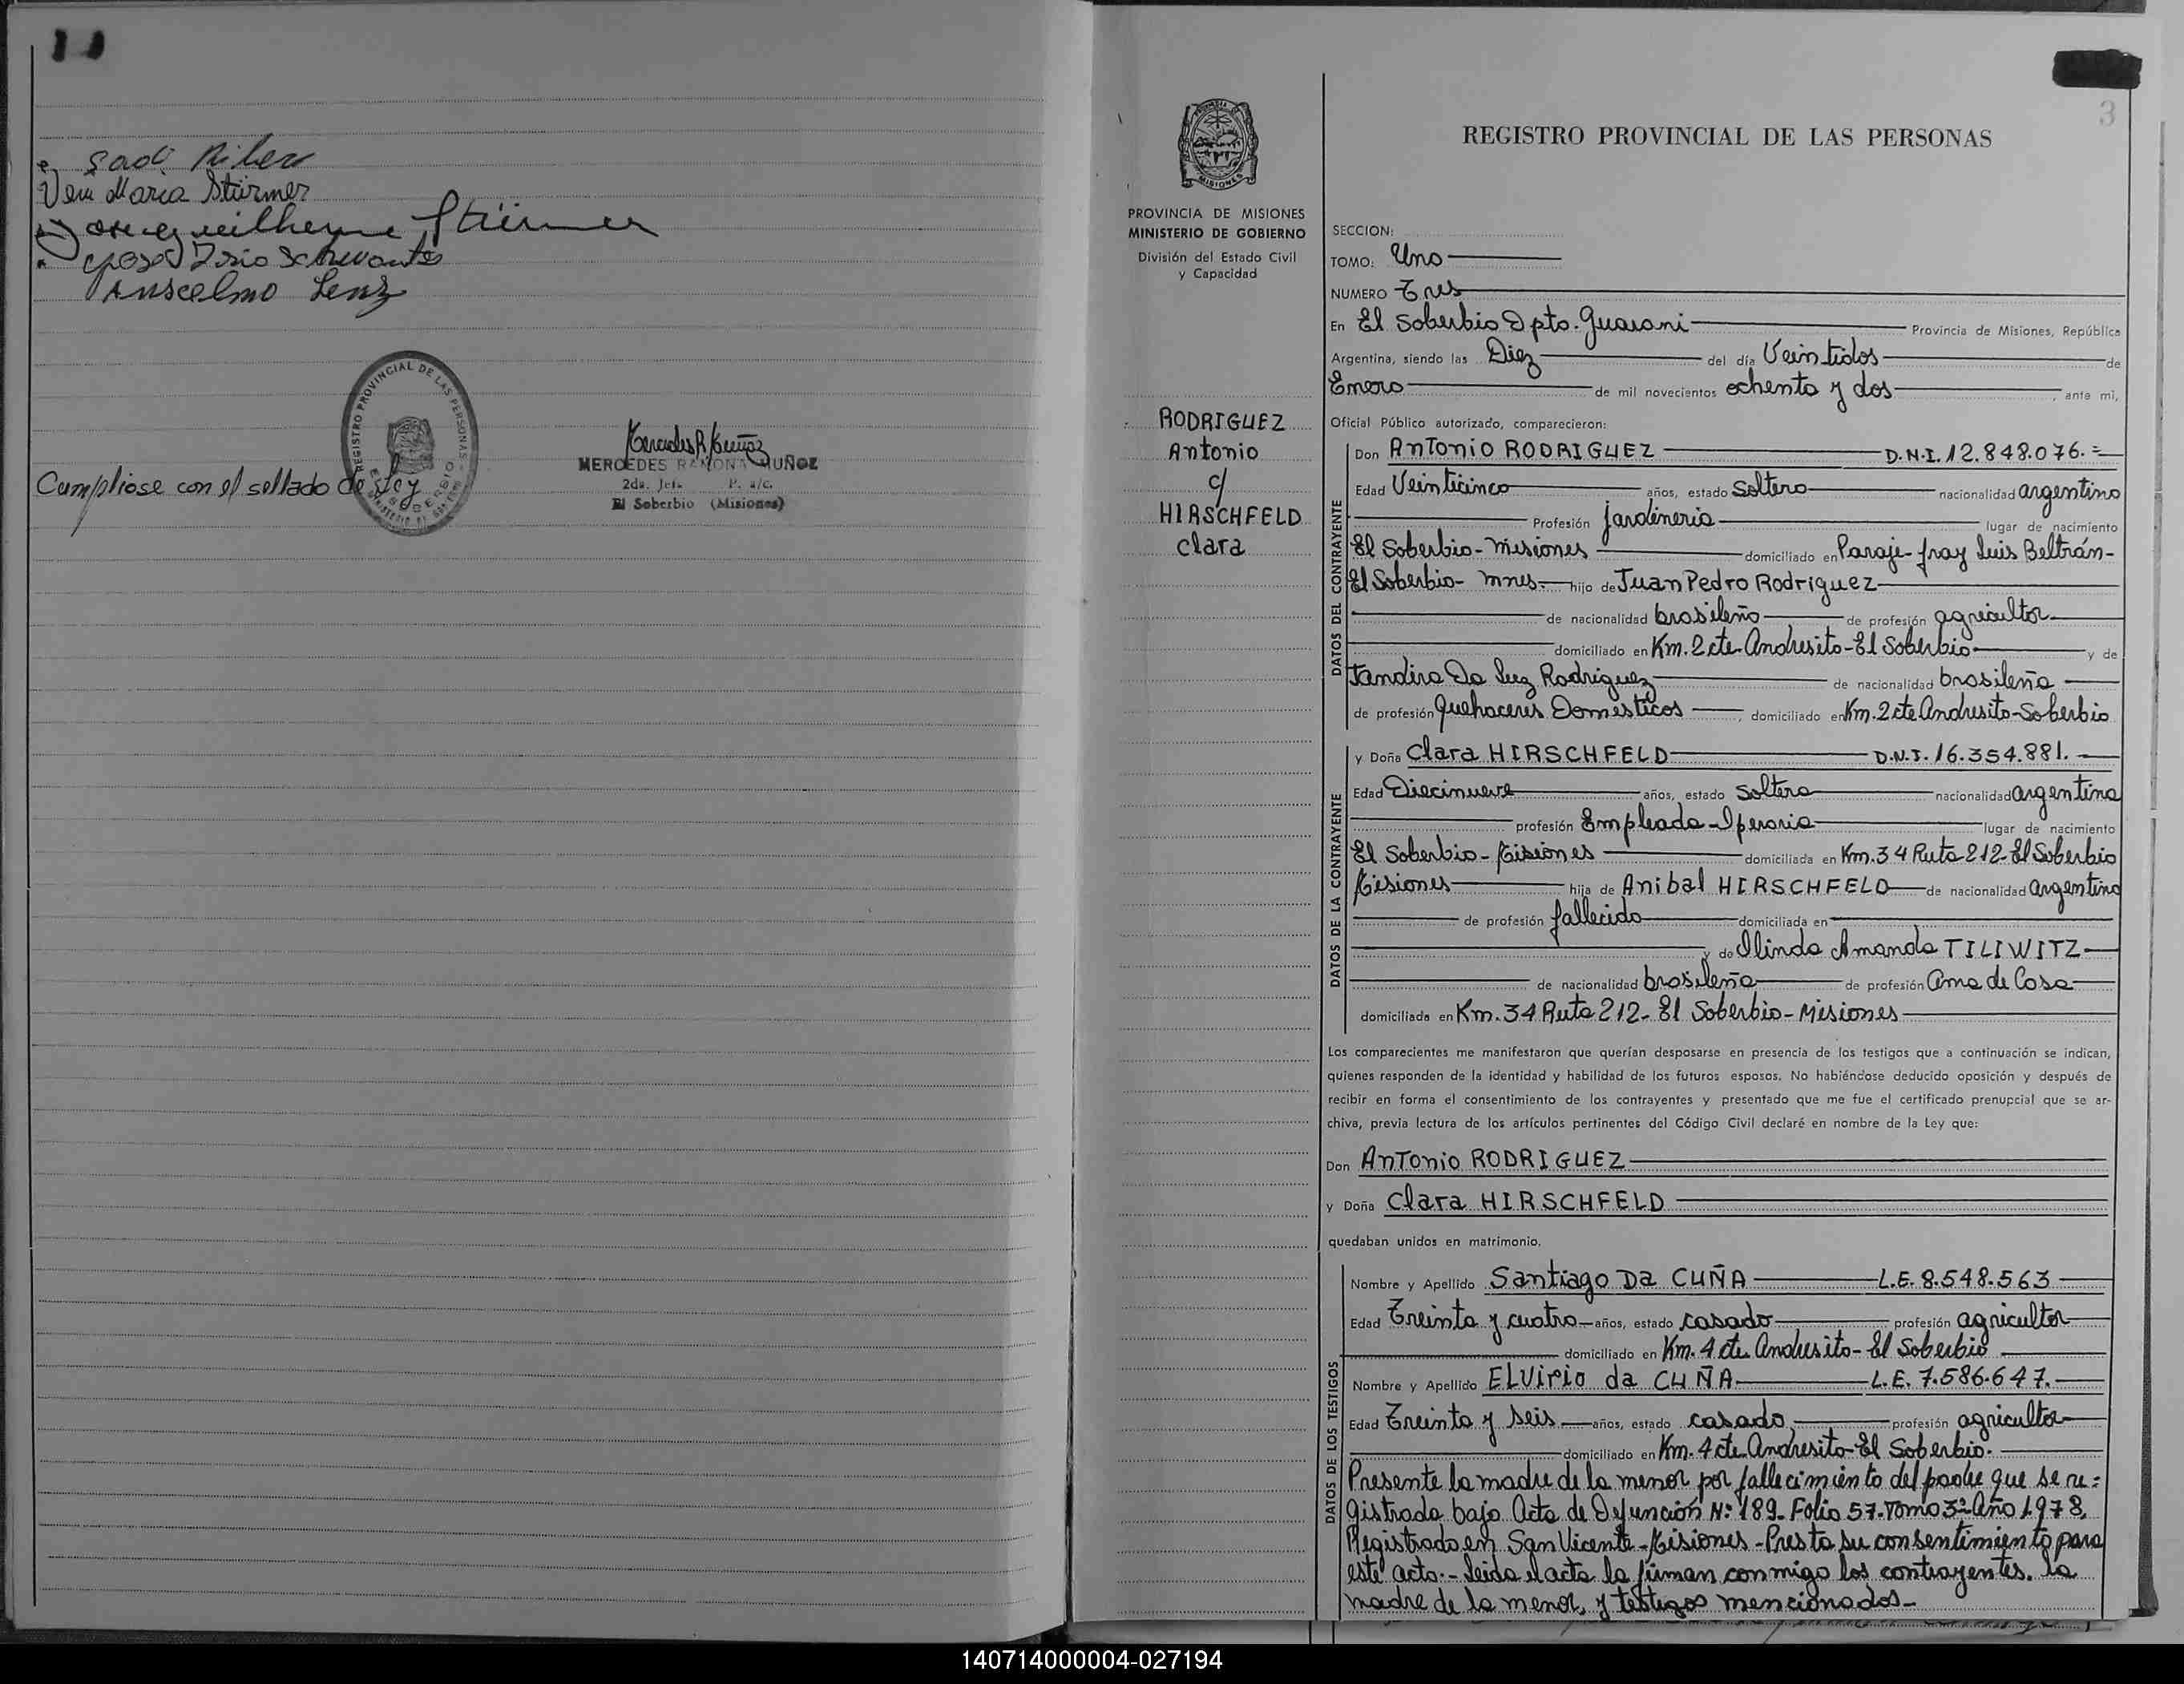 Sadi Ribero
Veni Maria Stürmer
Jose Guilherme Stürmer
Anscelmo Lenz
REGISTRO PROVINCIAL DE LAS PERSONAS
EL SOBERBIO
MERCEDES RAMONA MUÑOZ
2da. Jefe P. a/c.
El Soberbio (Misiones)
Cumpliose con el sellado de Ley
3
MISIONES
PROVINCIA DE MISIONES
MINISTERIO DE GOBIERNO
División del Estado Civil
y Capacidad
RODRIGUEZ
Antonio
c/
HIRSCHFELD
Clara
REGISTRO PROVINCIAL DE LAS PERSONAS
SECCION:
TOMO: Uno
NUMERO Tres
En El Soberbio Dpto. Guarani Provincia de Misiones, República
Argentina, siendo las Diez del día Veintidos de
Enero de mil novecientos ochenta y dos, ante mi,
Oficial Público autorizado, comparecieron:
DATOS DEL CONTRAYENTE
Don Antonio RODRIGUEZ D.N.I. 12.848.076.=
Edad Veinticinco años, estado Soltero nacionalidad argentino
Profesión Jardineria lugar de nacimiento
El Soberbio - Misiones domiciliado en Paraje - fray Luis Beltrán -
El Soberbio - Mnes. hijo de Juan Pedro Rodriguez
de nacionalidad brasileño de profesión agricultor
domiciliado en Km. 2 cte Andresito - El Soberbio y de
Jandira Da Luz Rodriguez de nacionalidad brasileña
de profesión Quehaceres Domésticos, domiciliado en Km. 2 cte Andresito - Soberbio
DATOS DE LA CONTRAYENTE
y Doña Clara HIRSCHFELD D.N.I. 16.354.881.
Edad Diecinueve años, estado Soltera nacionalidad argentina
profesión Empleada - Operaria lugar de nacimiento
El Soberbio - Misiones domiciliada en Km. 34 Ruta 212 - El Soberbio
Misiones hija de Anibal HIRSCHFELD de nacionalidad argentino
de profesión fallecido domiciliada en
y de Olinda Amanda TILIWITZ
de nacionalidad brasileña de profesión Ama de Casa
domiciliada en Km. 34 Ruta 212 - El Soberbio - Misiones
Los comparecientes me manifestaron que querían desposarse en presencia de los testigos que a continuación se indican,
quienes responden de la identidad y habilidad de los futuros esposos. No habiéndose deducido oposición y después de
recibir en forma el consentimiento de los contrayentes y presentado que me fue el certificado prenupcial que se ar-
chiva, previa lectura de los artículos pertinentes del Código Civil declaré en nombre de la Ley que:
Don Antonio RODRIGUEZ
y Doña Clara HIRSCHFELD
quedaban unidos en matrimonio.
DATOS DE LOS TESTIGOS
Nombre y Apellido Santiago Da CUÑA L.E. 8.548.563
Edad Treinta y cuatro años, estado casado profesión agricultor
domiciliado en Km. 4 cte Andresito - El Soberbio
Nombre y Apellido ELVirio da CUÑA L.E. 7.586.647.
Edad Treinta y seis años, estado casado profesión agricultor
domiciliado en Km. 4 cte Andresito - El Soberbio.
Presente la madre de la menor por fallecimiento del padre que se re=
gistrada bajo Acta de Defunción N: 189 - Folio 57. Tomo 3º Año 1.978,
Registrado en San Vicente - Misiones - Presta su consentimiento para
este acto. - Leida el acta la firman conmigo los contrayentes. la
madre de la menor, y testigos mencionados -
140714000004-027194